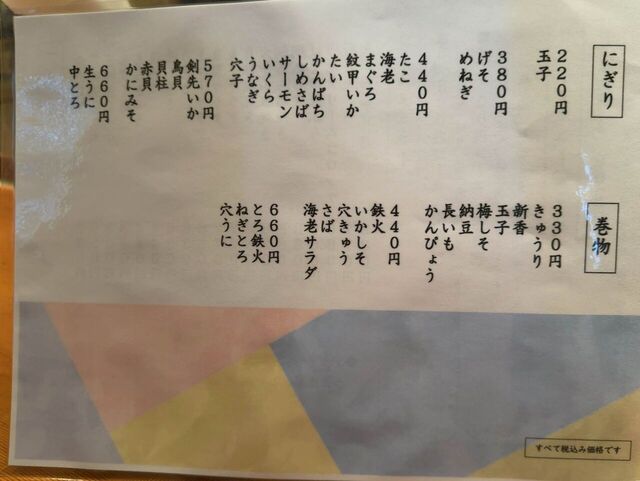 にぎり
２２０円
玉子
３８０円
げそ
めねぎ
４４０円
たこ
海老
まぐろ
紋甲いか
たい
かんぱち
しめさば
サーモン
いくら
うなぎ
穴子
５７０円
剣先いか
鳥貝
貝柱
赤貝
かにみそ
６６０円
生うに
中とろ
巻物
３３０円
きゅうり
新香
玉子
梅しそ
納豆
長いも
かんぴょう
４４０円
鉄火
いかしそ
穴きゅう
さば
海老サラダ
６６０円
とろ鉄火
ねぎとろ
穴うに
すべて税込み価格です